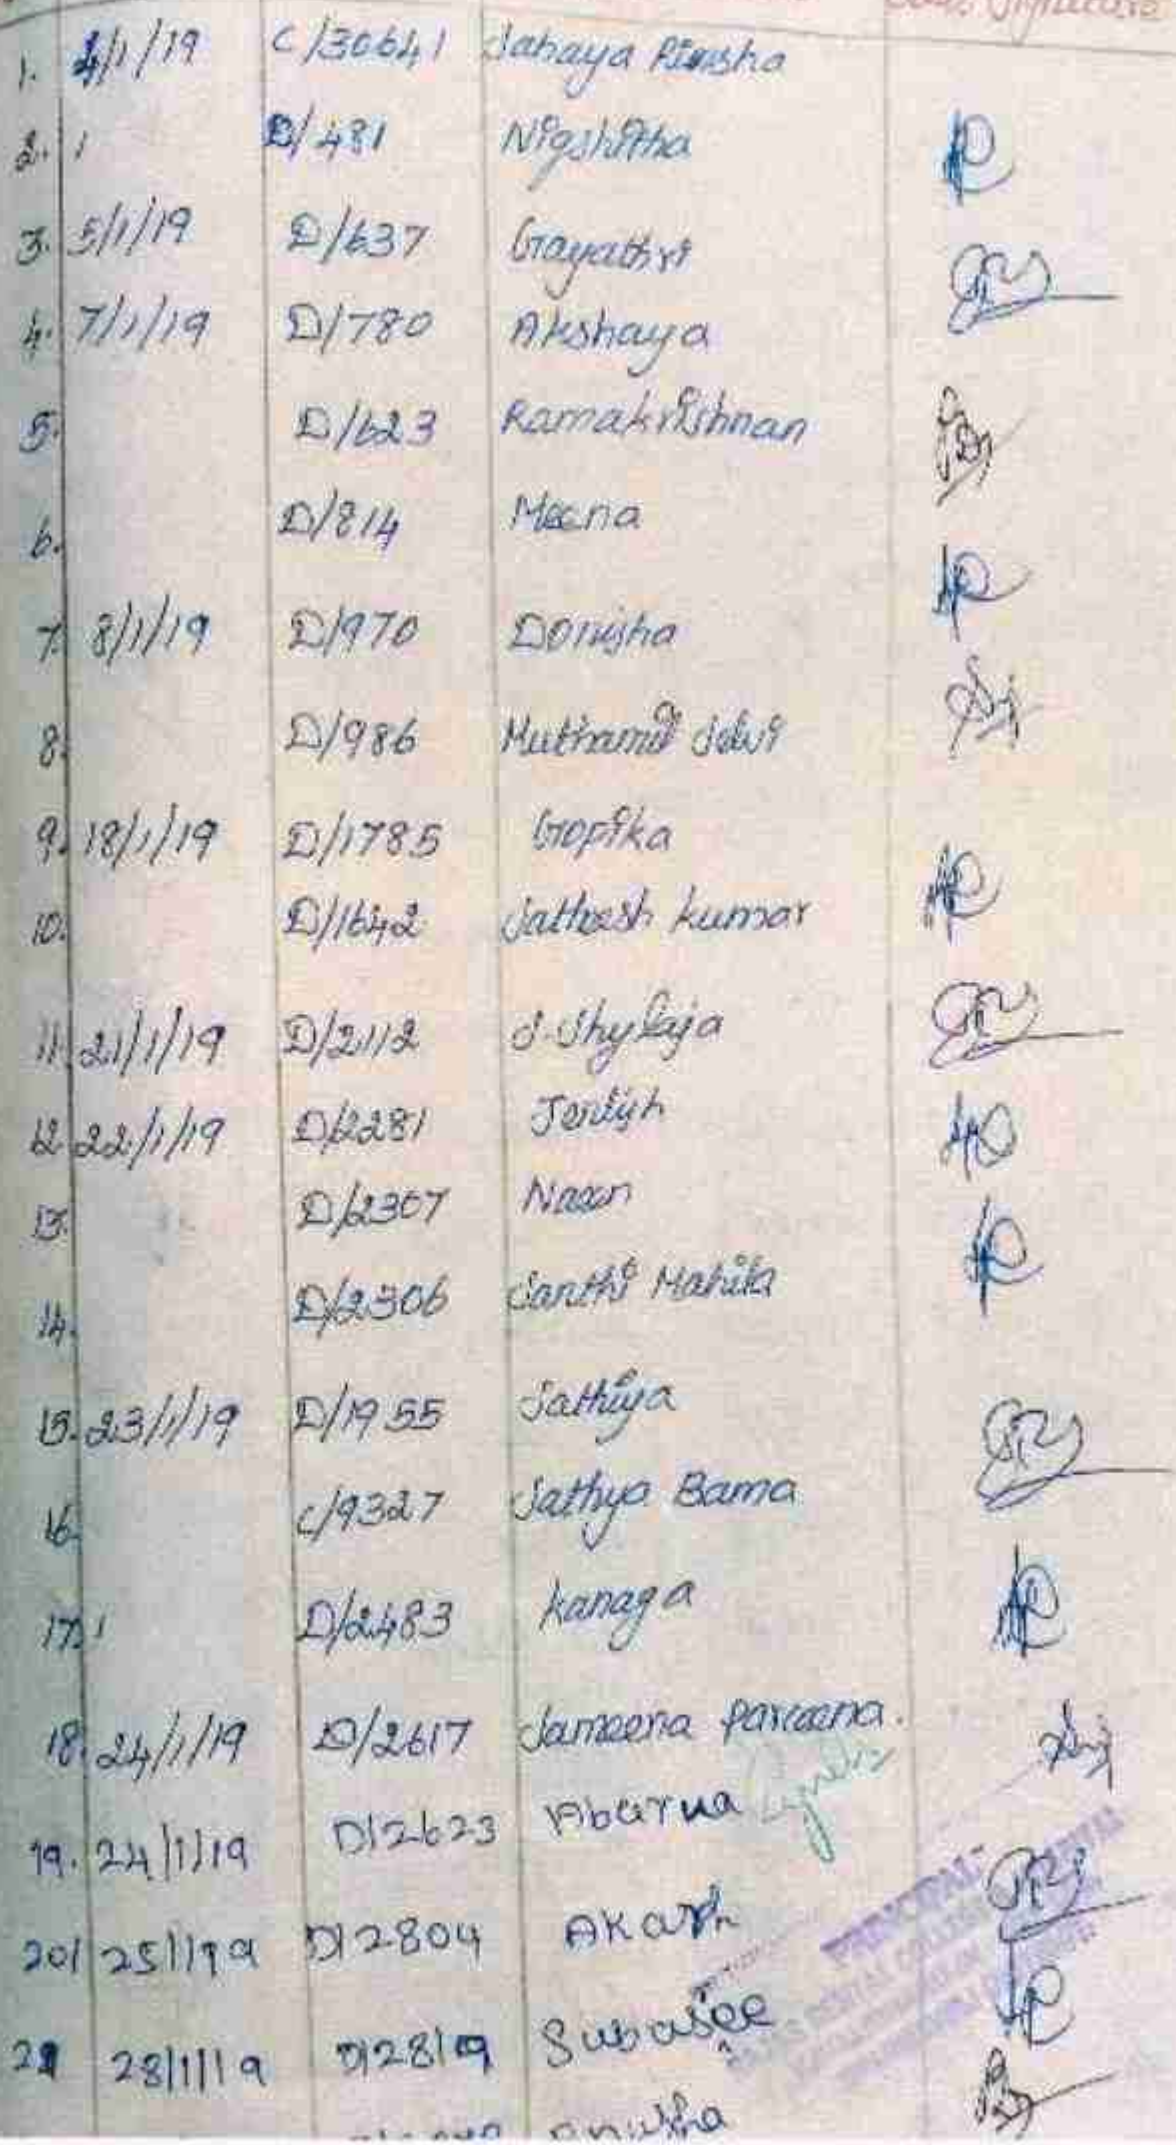 Signature
1. 4/1/19 C/30641 Sahaya
2. D/481 Nigshitha
3. 5/1/19 D/637 Gayathri
4. 7/1/19 D/780 Akshaya
5. D/623 Ramakrishnan
6. D/814 Meena
7. 8/1/19 D/970 Donisha
8. D/986 Muthamil Selvi
9. 18/1/19 D/1785 Gopika
10. D/1642 Sathesh kumar
11. 21/1/19 D/2112 S. Shylaja
12. 22/1/19 D/2281
13. D/2307
14. D/2306 Santhi Mahila
15. 23/1/19 D/1955 Sathiya
16. C/9327 Sathya Bama
17. D/2483 kanaga
18. 24/1/19 D/2617 Sameena parveena.
19. 24/1/19 D/2623 Abarna
20 25/1/19 D/2804 Akash
21 28/1/19 D/2819 Subasree
PRINCIPAL
DENTAL COLLEGE
Anusha